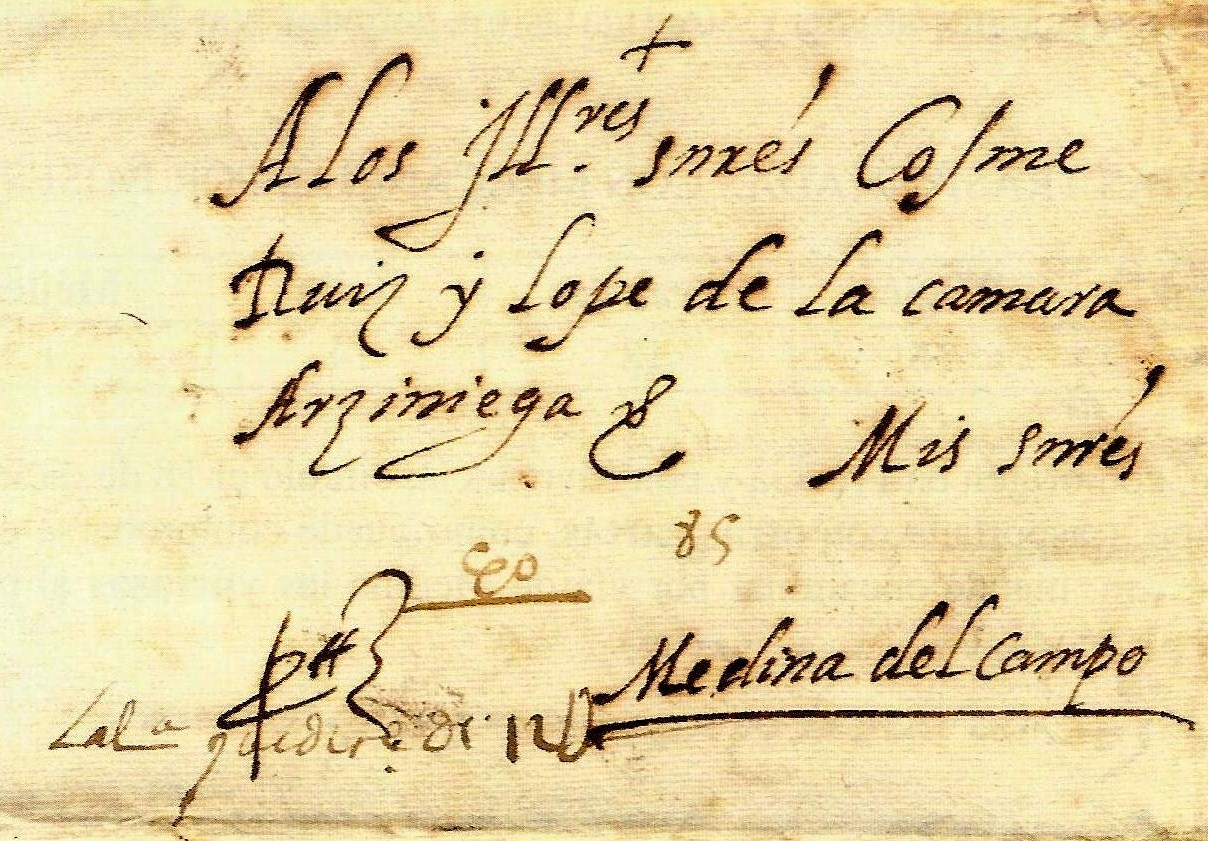 +
A los Illres. snres Cosme
Ruiz y Lope de la camara
Arziniega &
Mis snres
85
Medina del Campo